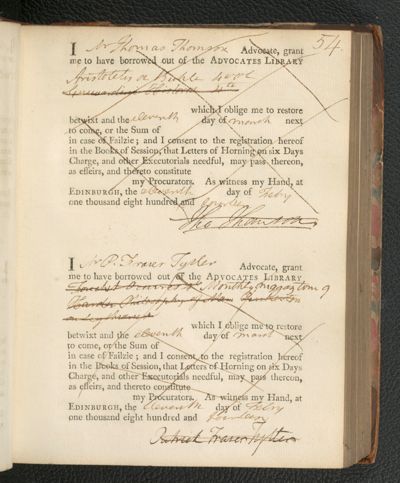 54.
I Mr Thomas Thomson Advocate, grant
me to have borrowed out of the ADVOCATES LIBRARY
Aristoteles a Buhle 4 vol
4to
which I oblige me to restore
betwixt and the eleventh day of march next
to come, or the Sum of
in case of Failzie; and I consent to the registration hereof
in the Books of Session, that Letters of Horning on six Days
Charge, and other Executorials needful, may pass thereon,
as effeirs, and thereto constitute
my Procurators. As witness my Hand, at
EDINBURGH, the eleventh day of Febry
one thousand eight hundred and fourteen
Tho Thomson
I Mr P. Fraser Tytler Advocate, grant
me to have borrowed out of the ADVOCATES LIBRARY
Monthly magaz tom 9
Philosophy of Man Pinkerton
which I oblige me to restore
betwixt and the eleventh day of march next
to come, or the Sum of
in case of Failzie; and I consent to the registration hereof
in the Books of Session, that Letters of Horning on six Days
Charge, and other Executorials needful, may pass thereon,
as effeirs, and thereto constitute
my Procurators. As witness my Hand, at
EDINBURGH, the eleventh day of Febry
one thousand eight hundred and fourteen
Patrick Fraser Tytler